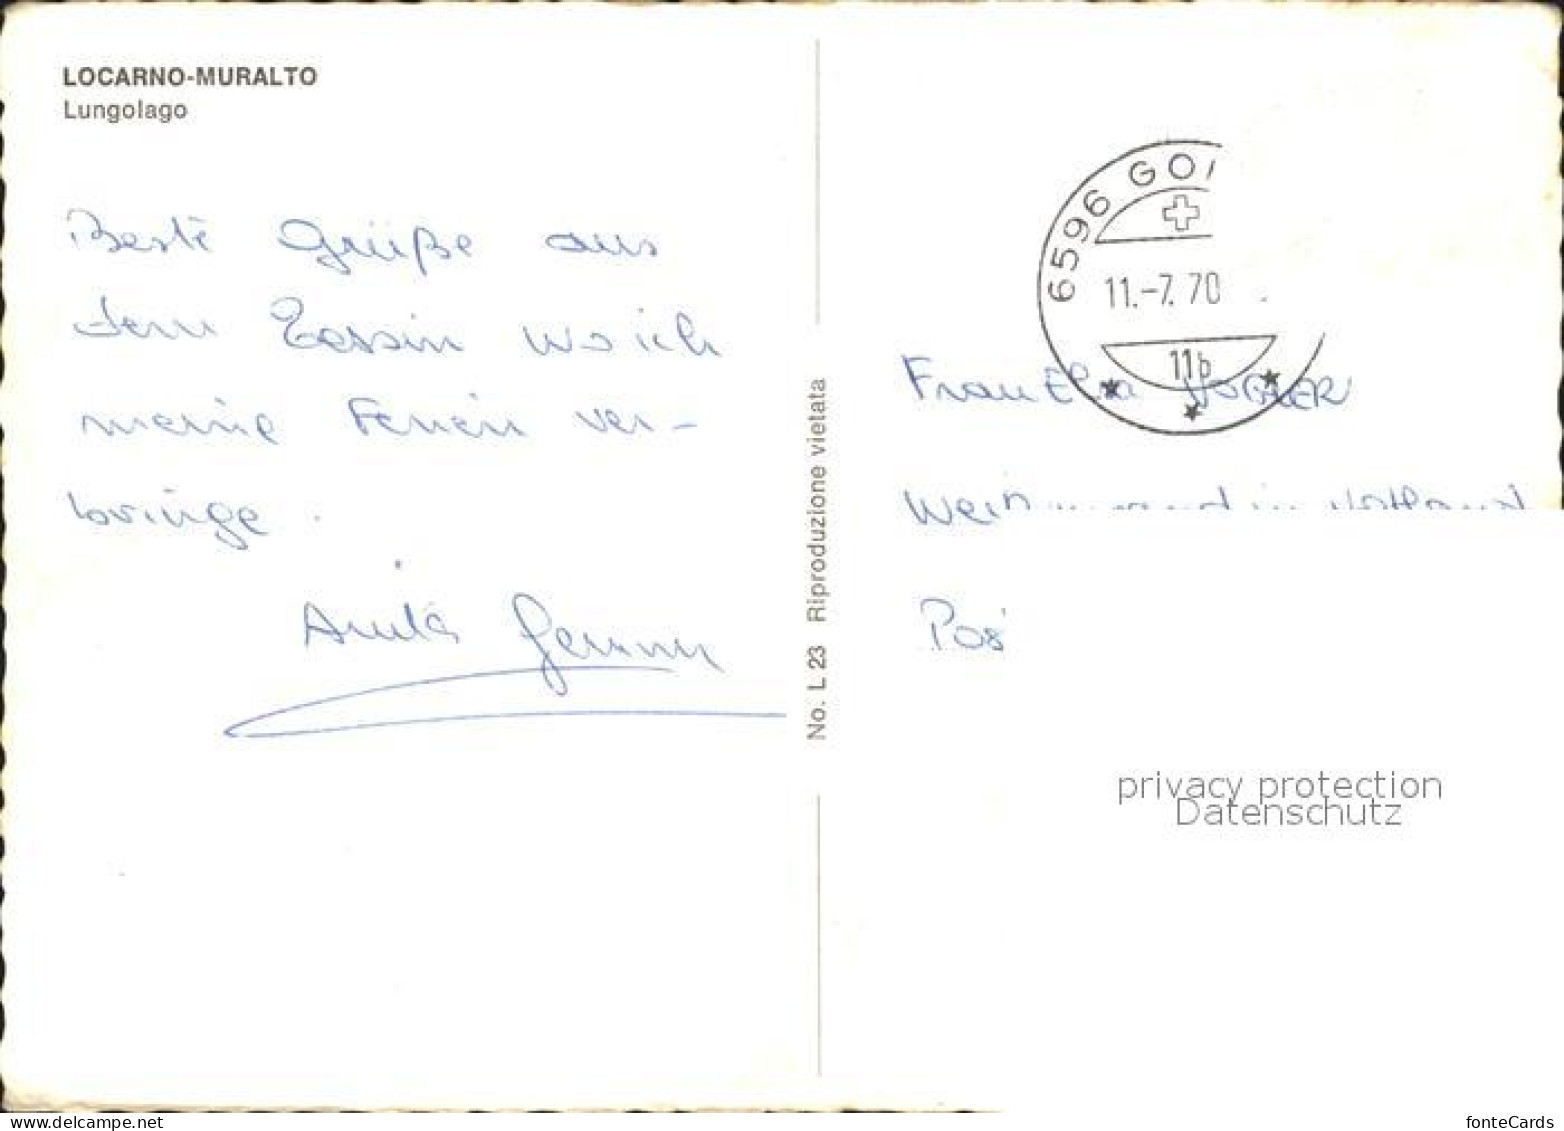 LOCARNO-MURALTO
Lungolago
Beste Grüße aus
dem Tessin wo ich
meine Ferien ver-
bringe.
Anita
No. L 23 Riproduzione vietata
6596 GO
11.-7.70
11b
Frau
Pos
privacy protection
Datenschutz
www.delcampe.net
fonteCards